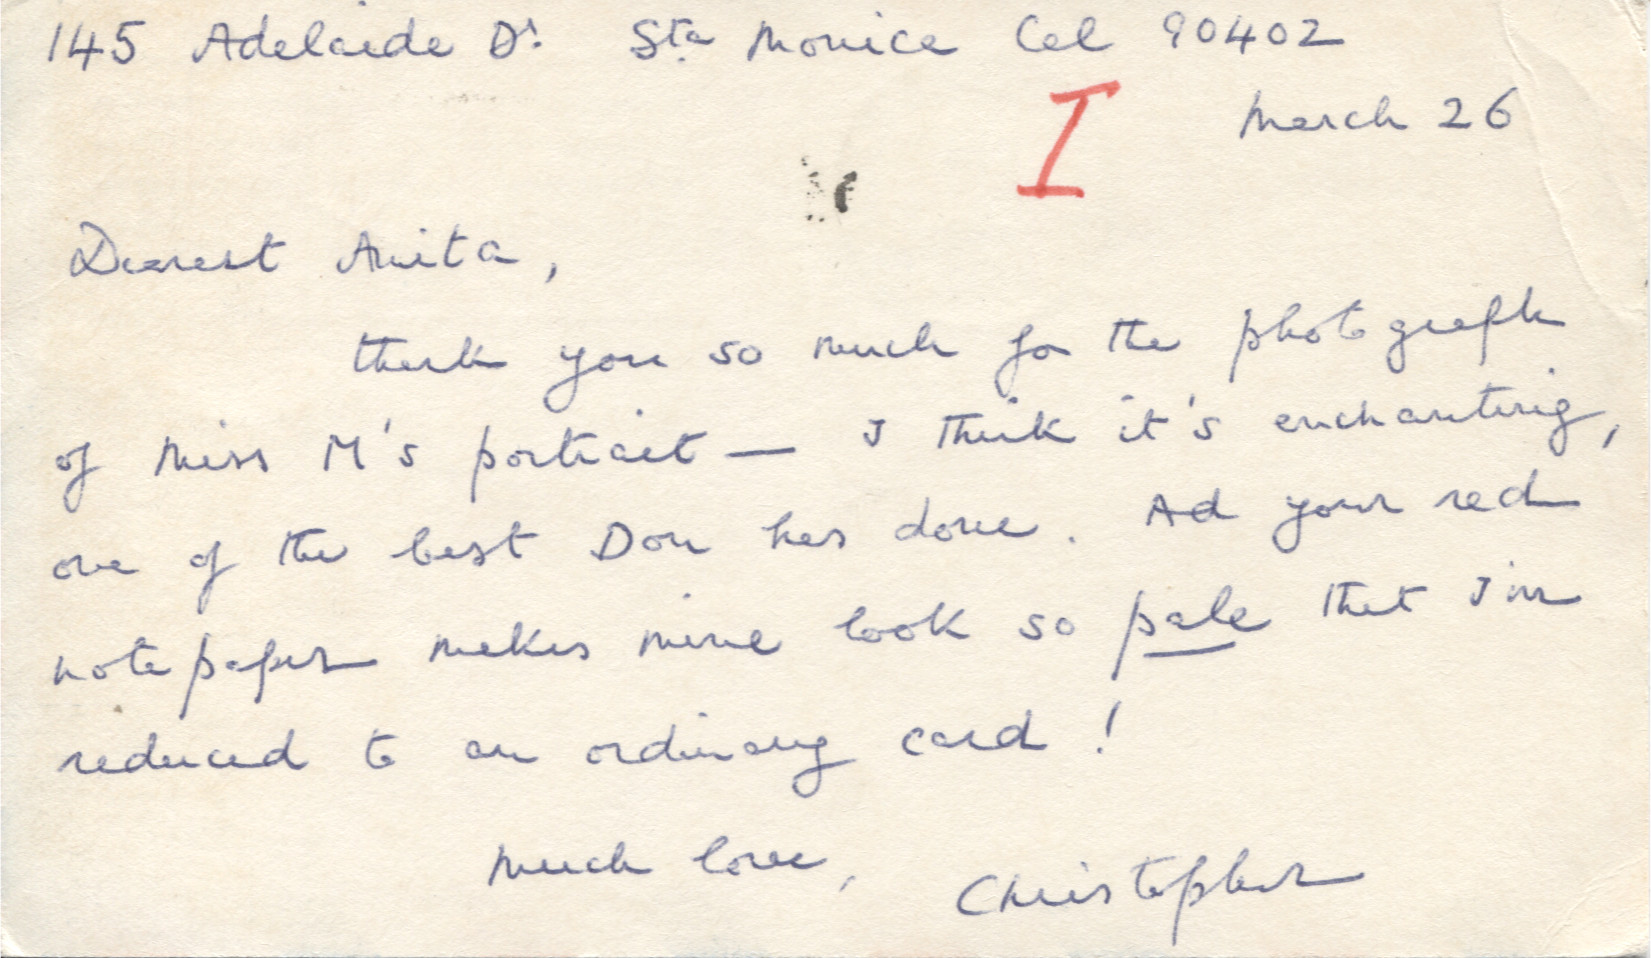 145 Adelaide Dr. Sta Monica Cal 90402
I
March 26
Dearest Anita,
thank you so much for the photograph
of Miss M's portrait — I think it's enchanting,
one of the best Don has done. Ad your red
notepaper makes mine look so pale that I'm
reduced to an ordinary card!
Much love, Christopher